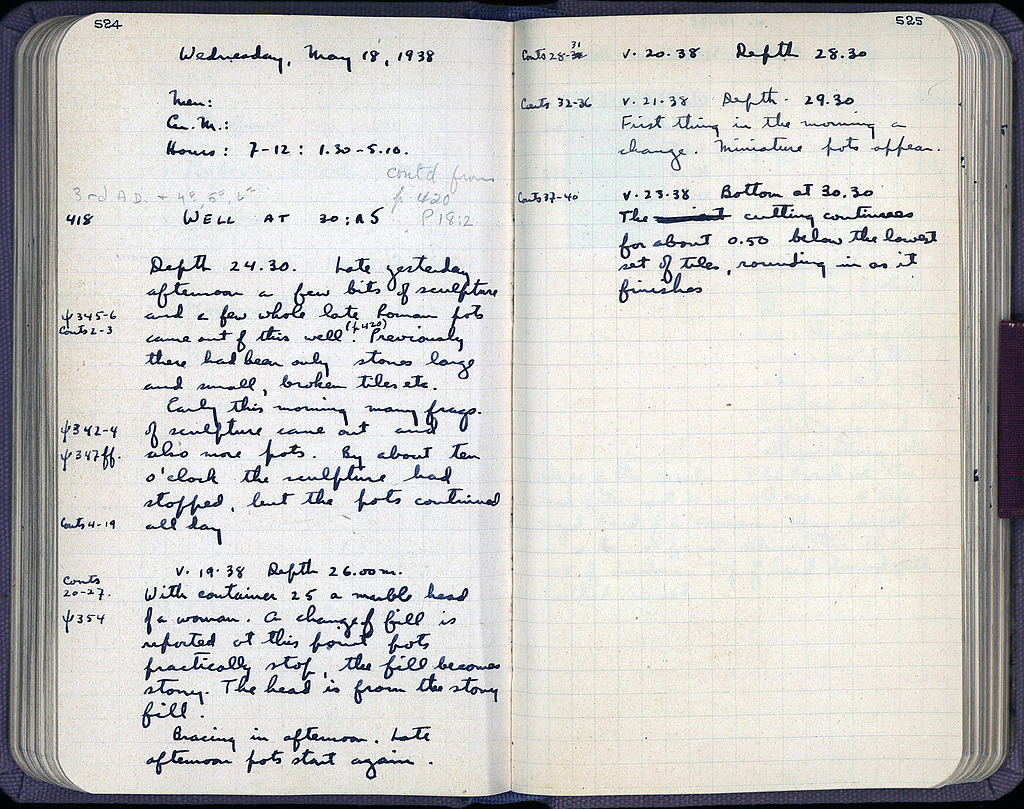 524
Wednesday, May 18, 1938
Men:
Gn. M.:
Hours: 7-12: 1.30-5.10.
contd from
p 420
3rd A.D. + 4th, 5th, 6th
P 18:2
418 WELL AT 30:ΛS
Depth 24.30. Late yesterday
afternoon a few bits of sculpture
ψ345-6 and a few whole late Roman pots
Conts 2-3 came out of this well (p 420). Previously
there had been only stones large
and small, broken tiles etc.
Early this morning many frags.
ψ342-4 of sculpture came out and
ψ347ff. also more pots. By about ten
o'clock the sculpture had
stopped, but the pots continued
Conts 4-19 all day
v. 19.38 Depth 26.00 m.
Conts
20-27. With container 25 a marble head
ψ354 of a woman. A change of fill is
reported at this point pots
practically stop, the fill becomes
stony. The head is from the stony
fill.
Bracing in afternoon. Late
afternoon pots start again.
525
Conts 28-31 v. 20.38 Depth 28.30
Conts 32-36 v. 21.38 Depth. 29.30
First thing in the morning a
change. Miniature pots appear.
Conts 37-40 v. 23.38 Bottom at 30.30
The cutting continues
for about 0.50 below the lowest
set of tiles, rounding in as it
finishes